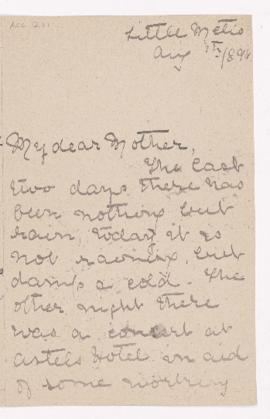 ACC 231
Little Metis
Aug 7th /894
My dear Mother,
The last
two days there has
been nothing but
rain, today it is
not raining, but
damp & cold. The
other night there
was a concert at
astels Hotel in aid
of some